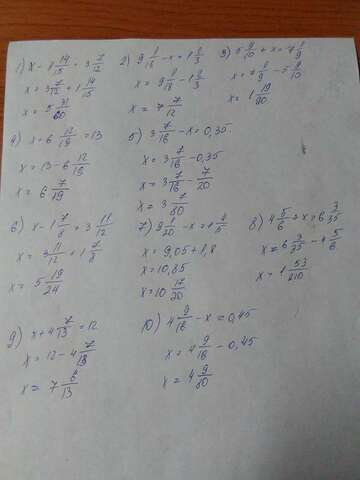 1) x - 1 14/15 = 3 7/12
x = 3 7/12 + 1 14/15
x = 5 31/60
2) 9 1/18 - x = 1 8/3
x = 9 1/18 - 1 8/3
x = 7 7/12
3) 5 9/10 + x = 7 8/9
x = 7 8/9 - 5 9/10
x = 1 19/90
4) x + 6 12/19 = 13
x = 13 - 6 12/19
x = 6 7/19
5) 3 7/16 - x = 0,35
x = 3 7/16 - 0,35
x = 3 7/16 - 7/20
x = 3 7/80
6) x - 1 7/8 = 3 11/12
x = 3 11/12 + 1 7/8
x = 5 19/24
7) 9 1/20 - x = 1 4/5
x = 9,05 + 1,8
x = 10,85
x = 10 17/20
8) 4 5/6 + x = 6 3/35
x = 6 3/35 - 4 5/6
x = 1 53/210
9) x + 4 7/13 = 12
x = 12 - 4 7/13
x = 7 6/13
10) 4 9/16 - x = 0,45
x = 4 9/16 - 0,45
x = 4 9/80